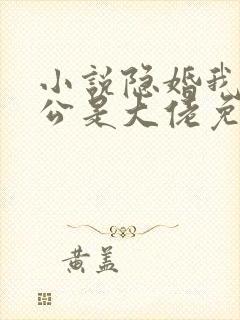 小说隐婚我
公是大佬免
黄盖